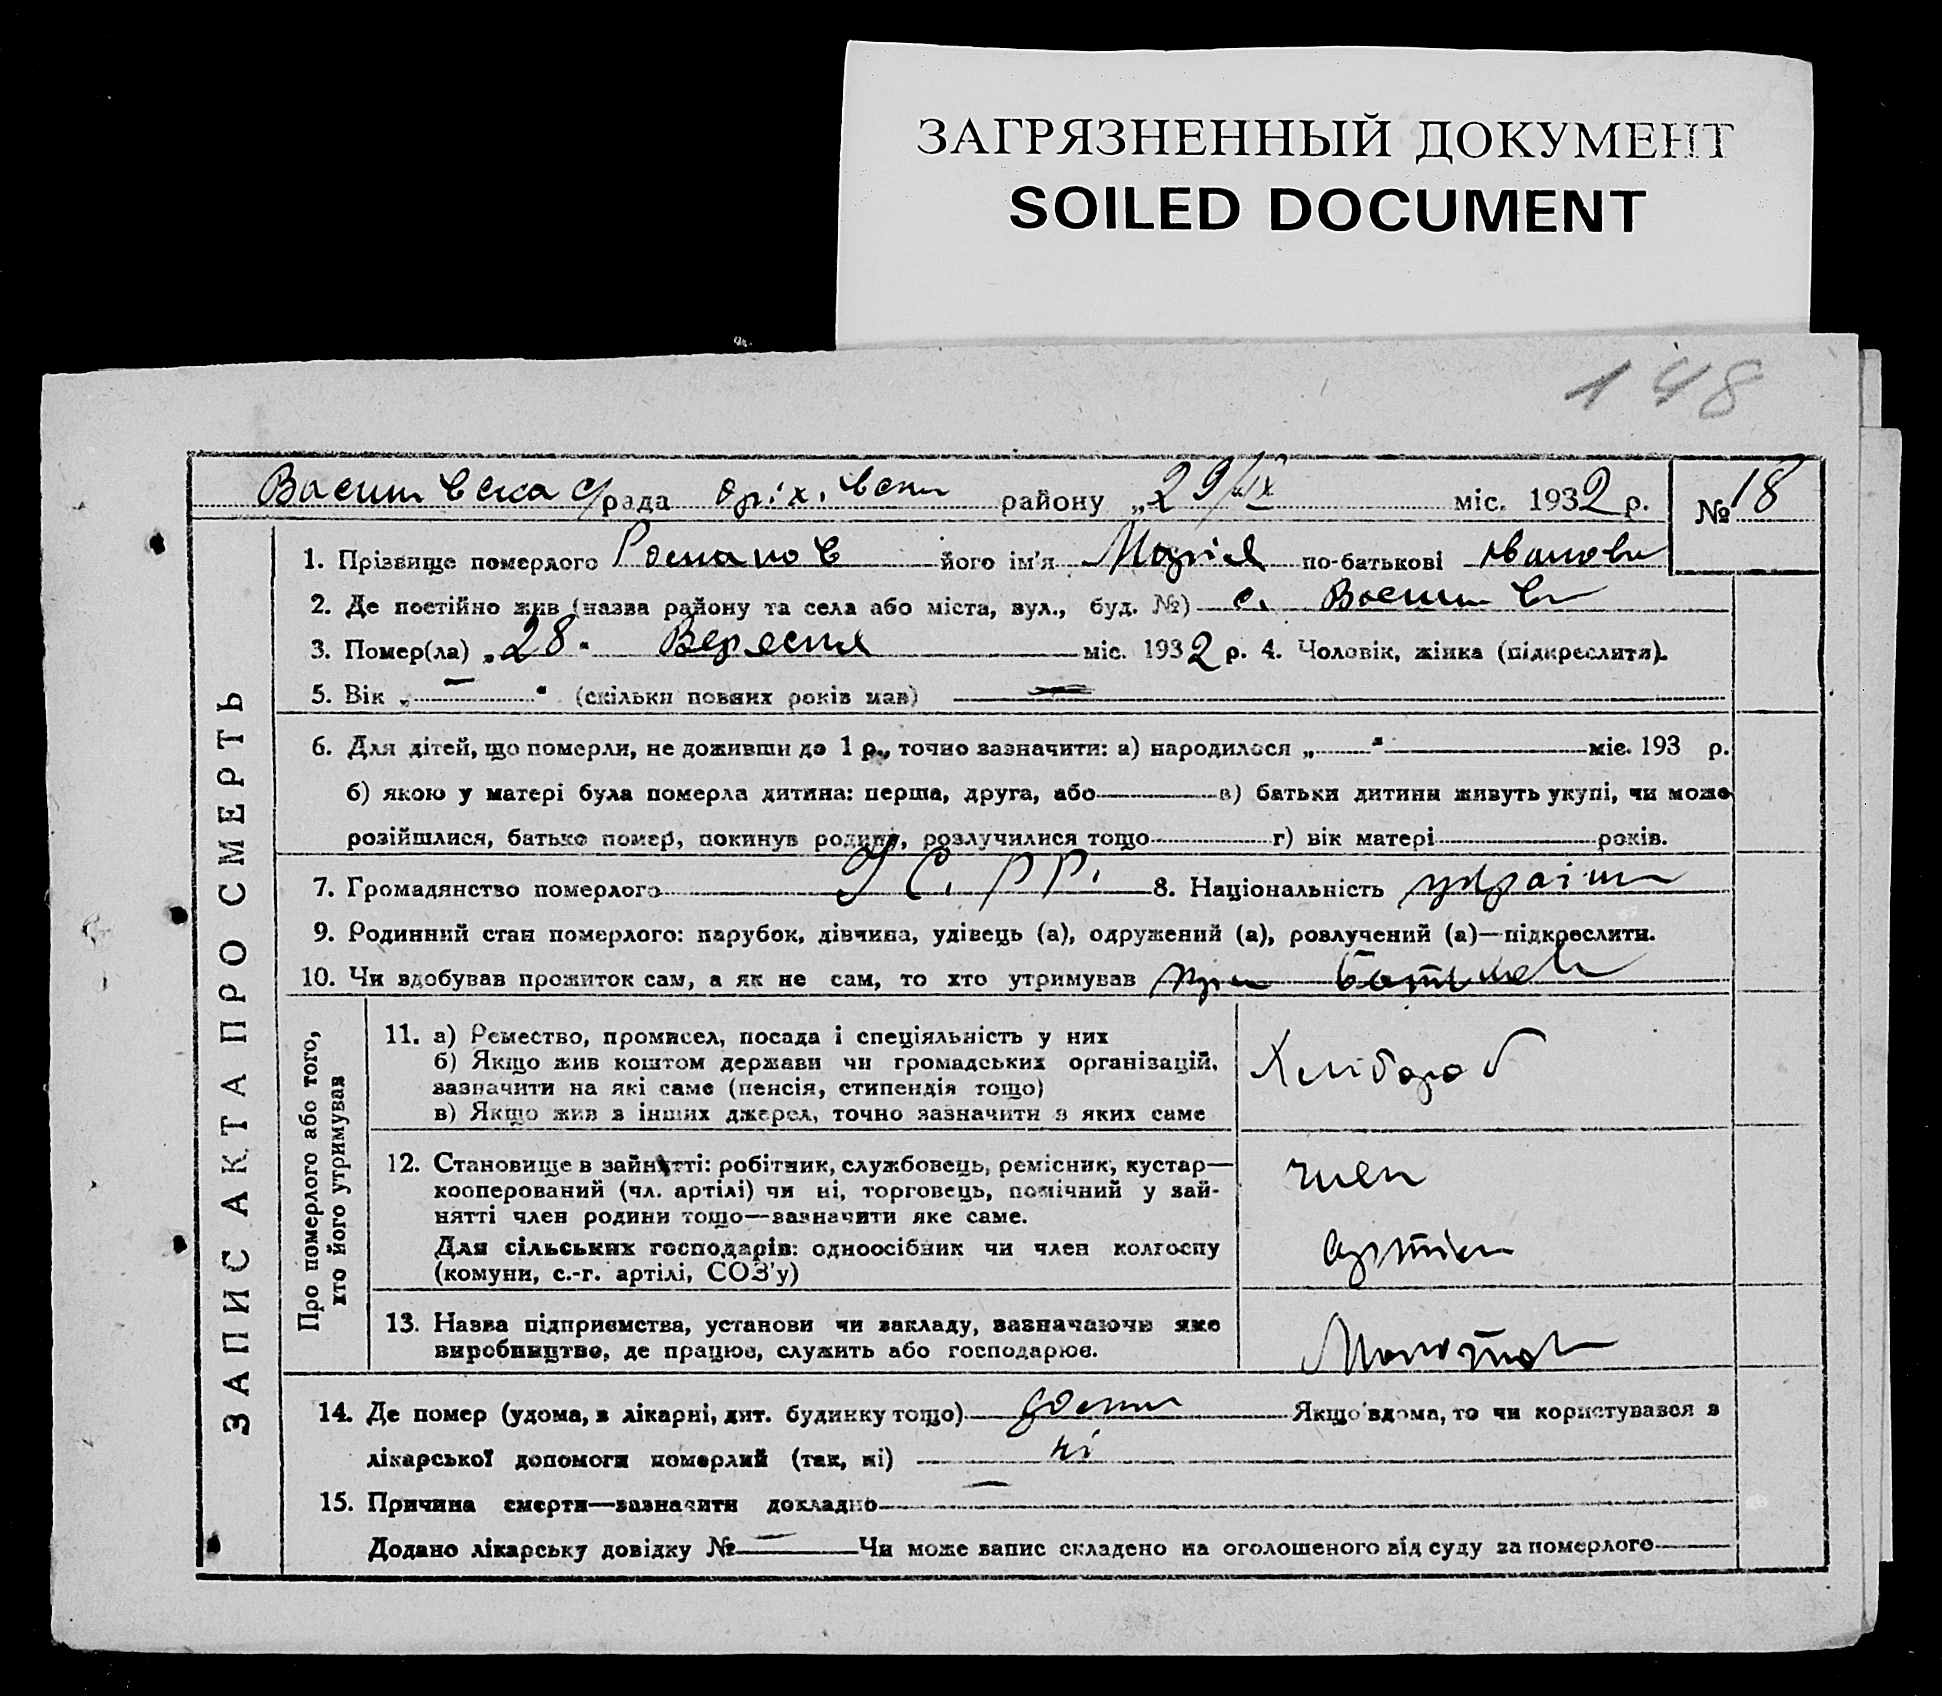 ЗАГРЯЗНЕННЫЙ ДОКУМЕНТ
SOILED DOCUMENT
148
с/рада районy „29/IX міс. 1932 р. № 18
1. Прізвище померлого Романов його ім'я Марія по-батькові
2. Де постійно жив (назва району та села або міста, вул., буд. №) с.
3. Помер(ла) „28" Вересня міс. 1932 р. 4. Чоловік, жінка (підкреслити).
5. Вік „ — " (скільки повних років мав) —
6. Для дітей, що померли, не доживши до 1 р., точно зазначити: а) народилося „ " міс. 193 р.
б) якою у матері була померла дитина: перша, друга, або в) батьки дитини живуть укупі, чи може
розійшлися, батько помер, покинув родину, розлучилися тощо г) вік матері років.
7. Громадянство померлого У С. Р Р. 8. Національність україн
9. Родинний стан померлого: парубок, дівчина, удівець (а), одружений (а), розлучений (а)—підкреслити.
10. Чи здобував прожиток сам, а як не сам, то хто утримував при
ЗАПИС АКТА ПРО СМЕРТЬ
Про померлого або того,
хто його утримував
11. а) Ремество, промисел, посада і спеціяльність у них
б) Якщо жив коштом держави чи громадських організацій,
зазначити на які саме (пенсія, стипендія тощо)
в) Якщо жив з інших джерел, точно зазначити з яких саме
Хлібороб
12. Становище в зайнятті: робітник, службовець, ремісник, кустар—
кооперований (чл. артілі) чи ні, торговець, помічний у зай-
нятті член родини тощо—зазначити яке саме.
Для сільських господарів: одноосібник чи член колгоспу
(комуни, с.-г. артілі, СОЗ'у)
член
артіли
13. Назва підприємства, установи чи закладу, зазначаючи яке
виробництво, де працює, служить або господарює.
14. Де помер (удома, в лікарні, дит. будинку тощо) дома Якщо вдома, то чи користувався з
лікарської допомоги померлий (так, ні) ні
15. Причина смерти—зазначити докладно —
Додано лікарську довідку № — Чи може запис складено на оголошеного від суду за померлого